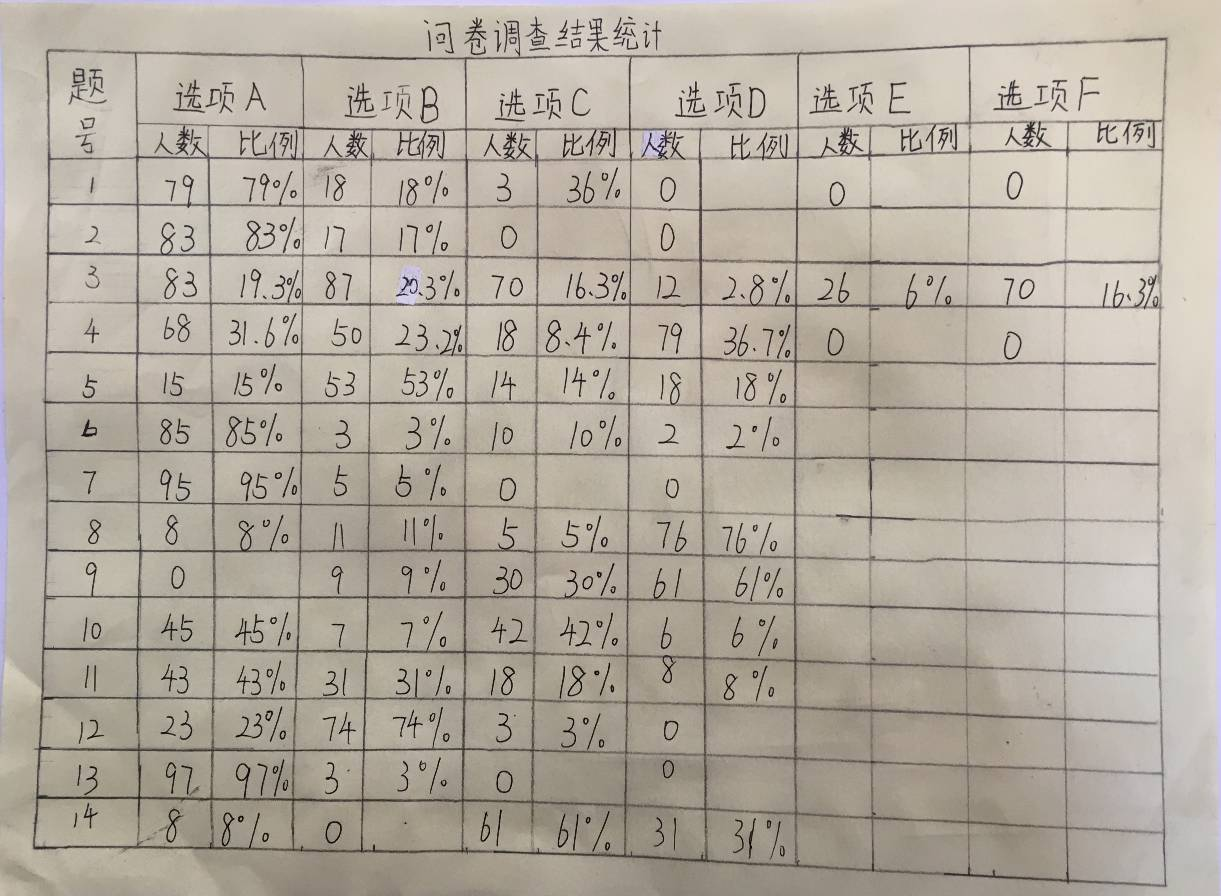 问卷调查结果统计
题号 选项A 选项B 选项C 选项D 选项E 选项F
人数 比例 人数 比例 人数 比例 人数 比例 人数 比例 人数 比例
1 79 79% 18 18% 3 36% 0 0 0
2 83 83% 17 17% 0 0
3 83 19.3% 87 20.3% 70 16.3% 12 2.8% 26 6% 70 16.3%
4 68 31.6% 50 23.2% 18 8.4% 79 36.7% 0 0
5 15 15% 53 53% 14 14% 18 18%
6 85 85% 3 3% 10 10% 2 2%
7 95 95% 5 5% 0 0
8 8 8% 11 11% 5 5% 76 76%
9 0 9 9% 30 30% 61 61%
10 45 45% 7 7% 42 42% 6 6%
11 43 43% 31 31% 18 18% 8 8%
12 23 23% 74 74% 3 3% 0
13 97 97% 3 3% 0 0
14 8 8% 0 61 61% 31 31%